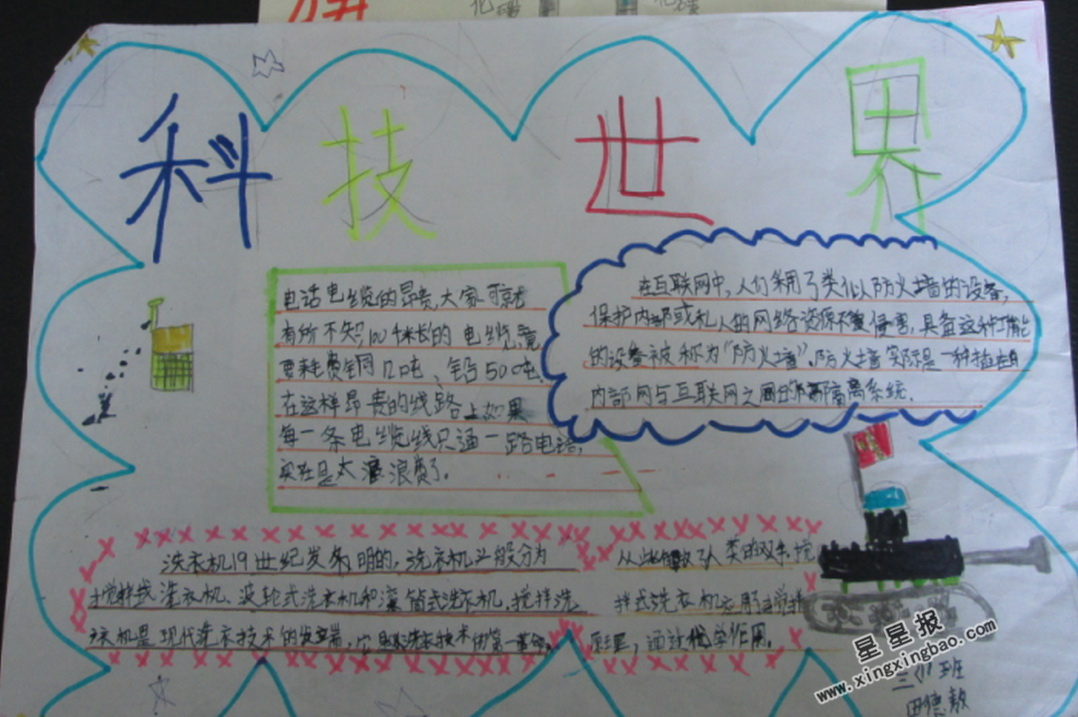 科技世界
电话电缆的昂贵,大家可能
有所不知,100千米长的电缆竟
要耗费铜12吨、铅50吨.
在这样昂贵的线路上如果
每一条电缆线只通一路电话,
实在是太浪费了。
在互联网中,人们采用了类似防火墙的设备,
保护内部或私人的网络资源不受侵害,具备这种功能
的设备被称为"防火墙".防火墙实际是一种插在
内部网与互联网之间的隔离系统.
洗衣机19世纪发明的,洗衣机一般分为
洗衣机、波轮式洗衣机和滚筒式洗衣机,搅拌洗
衣机是现代洗衣技术的发端,它是洗衣技术的第一
从此解放了人类的双手,搅
拌式洗衣机应用了搅拌
原理,通过化学作用。
三(1)班
田德
星星报
www.xingxingbao.com